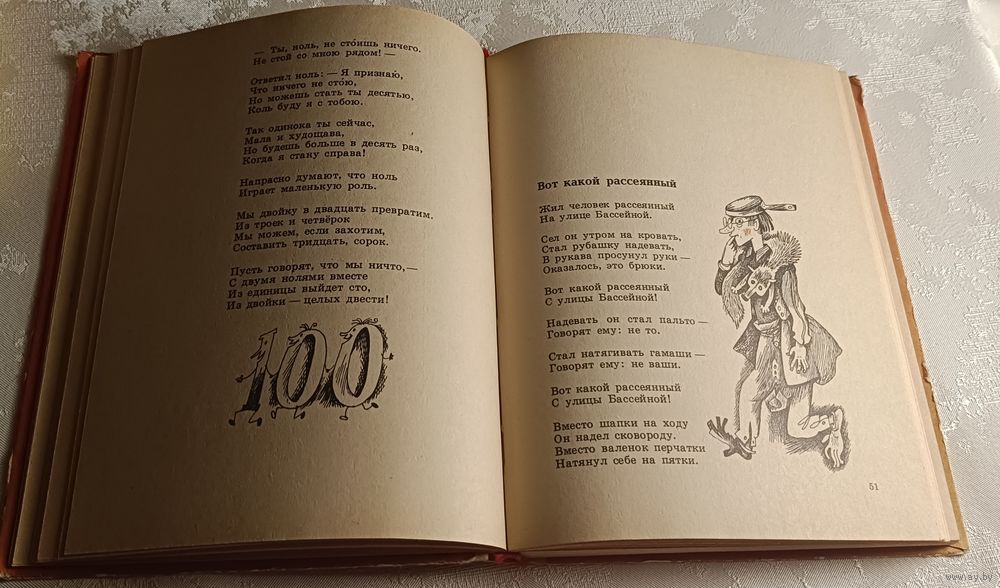 — Ты, ноль, не сто́ишь ничего.
Не стой со мною рядом! —
Ответил ноль: — Я признаю,
Что ничего не сто́ю,
Но можешь стать ты десятью,
Коль буду я с тобою.
Так одинока ты сейчас,
Мала и худощава,
Но будешь больше в десять раз,
Когда я стану справа!
Напрасно думают, что ноль
Играет маленькую роль.
Мы двойку в двадцать превратим.
Из троек и четвёрок
Мы можем, если захотим,
Составить тридцать, сорок.
Пусть говорят, что мы ничто,—
С двумя нолями вместе
Из единицы выйдет сто,
Из двойки — целых двести!
100
Вот какой рассеянный
Жил человек рассеянный
На улице Бассейной.
Сел он утром на кровать,
Стал рубашку надевать,
В рукава просунул руки —
Оказалось, это брюки.
Вот какой рассеянный
С улицы Бассейной!
Надевать он стал пальто —
Говорят ему: не то.
Стал натягивать гамаши —
Говорят ему: не ваши.
Вот какой рассеянный
С улицы Бассейной!
Вместо шапки на ходу
Он надел сковороду.
Вместо валенок перчатки
Натянул себе на пятки.
51
www.ay.by